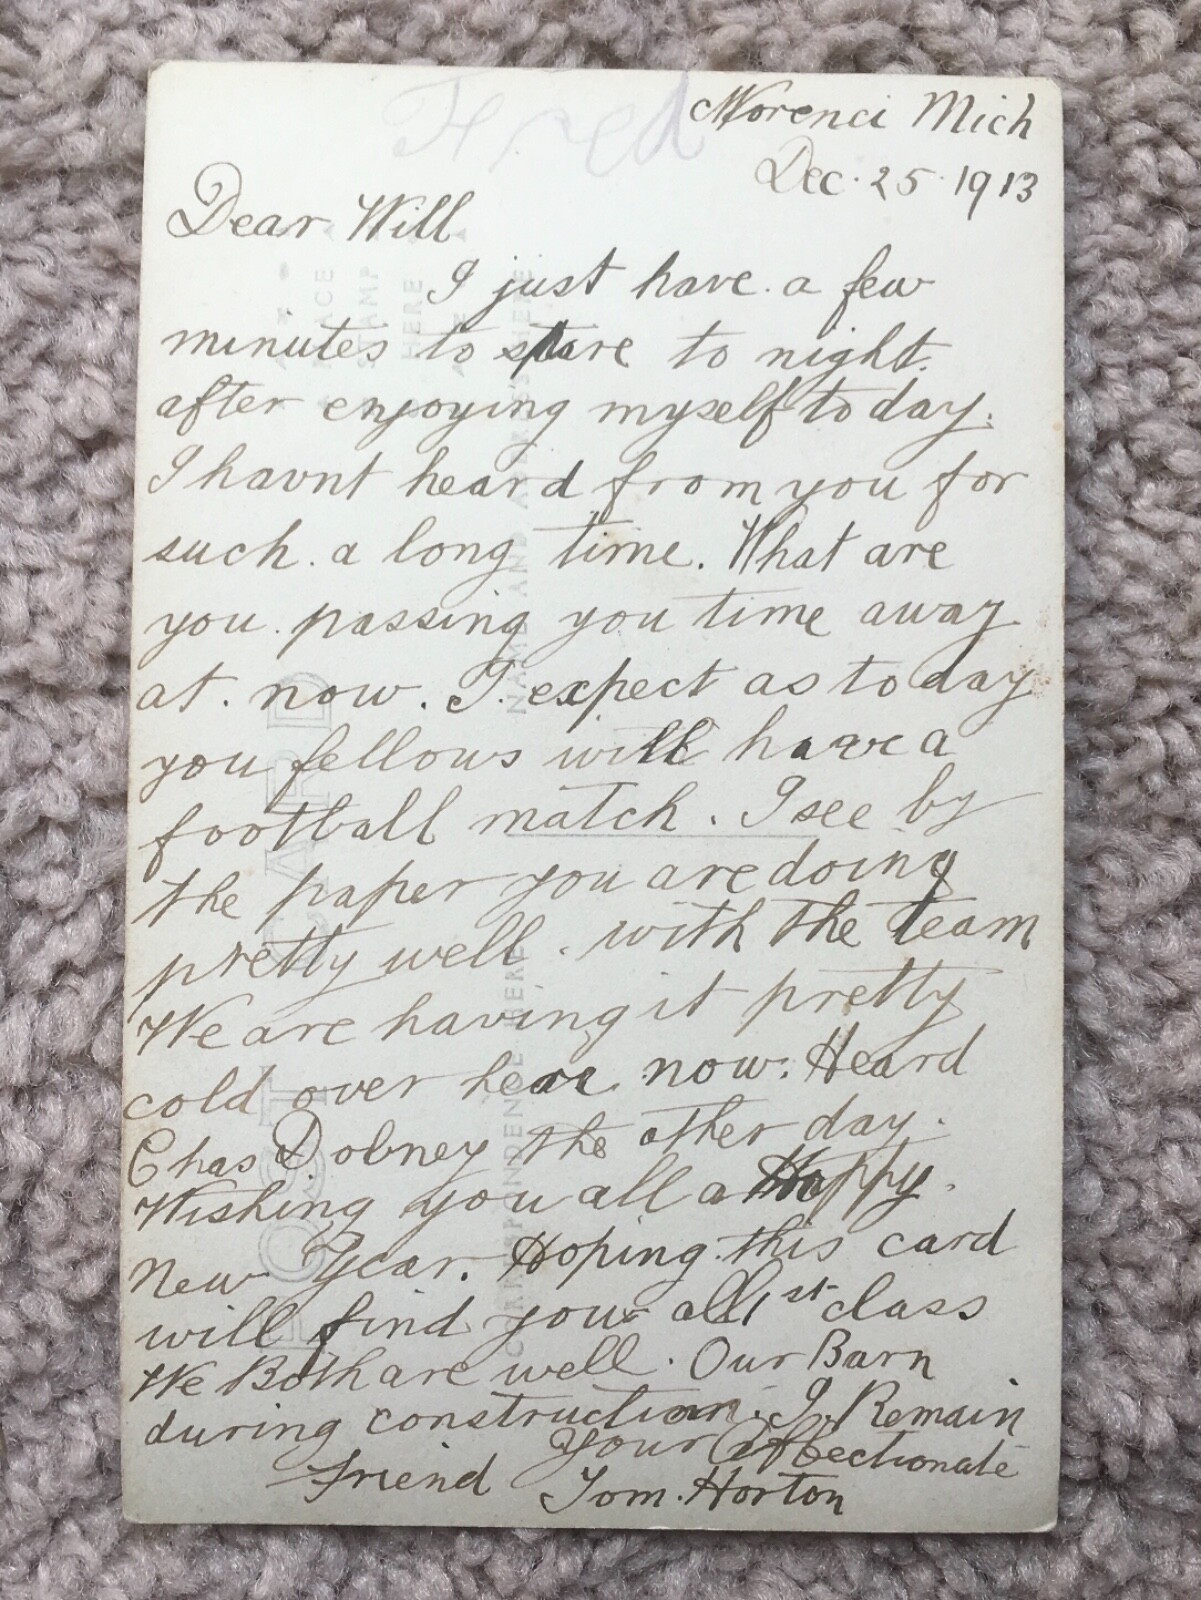 Fred
Morenci Mich
Dec. 25. 1913
Dear Will
I just have a few
minutes to spare to night.
after enjoying myself to day.
I havnt heard from you for
such a long time. What are
you passing you time away
at now. I expect as to day
you fellows will have a
football match. I see by
the paper you are doing
pretty well. with the team
We are having it pretty
cold over here now. Heard
Chas Dobney the other day.
Wishing you all a Happy.
New Year. Hoping this card
will find you all 1st class
We Both are well. Our Barn
during construction. I. Remain
Your Affectionate
Friend Tom. Horton
POST CARD
PLACE
STAMP
HERE
NAME AND ADDRESS HERE
CORRESPONDENCE HERE